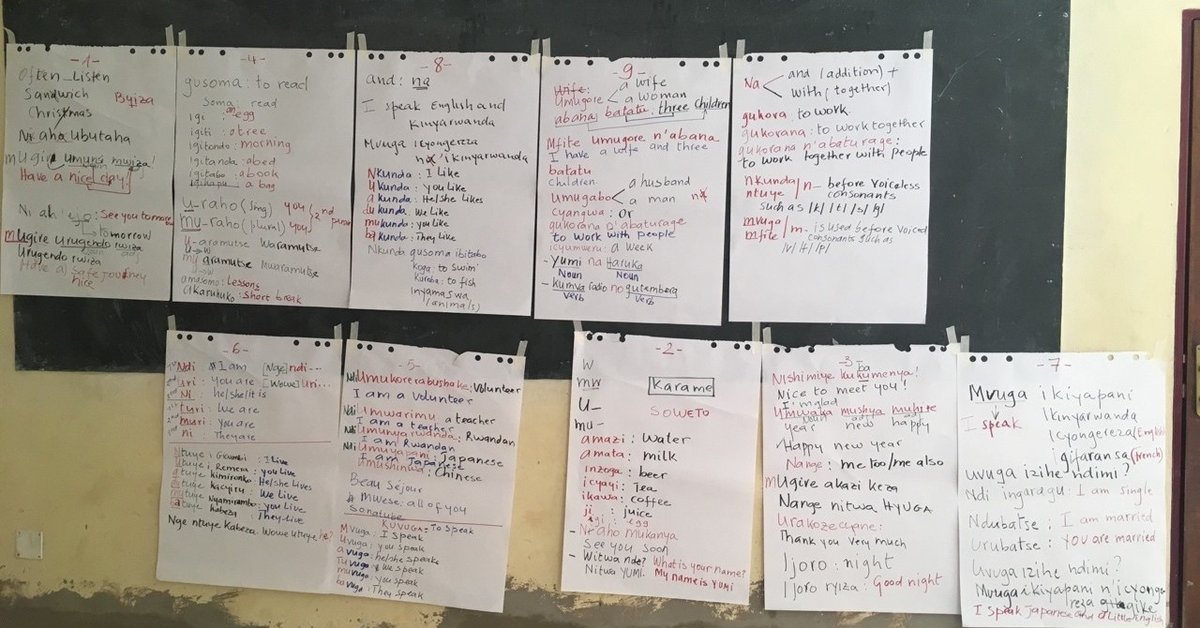 -1-
Often_Listen
Sandwich
Byiza
Christmas
Ni aha Ubutaha
mUgire umunsi mwiza!
Have a nice day!
Ni ah' ejo: See you tomorrow
tomorrow
mUgire Urugendo rwiza
Urugendo rwiza
Have a safe journey
nice
-4-
gusoma: to read
Soma: read
igi: an egg
igiti: a tree
igitondo: morning
igitanda: a bed
igitabo: a book
igikapu: a bag
u-raho (sing) you
mu-raho (plural) you
2nd person
u-aramutse Waramutse
u→w
mu aramutse Mwaramutse
u→w
amasomo: Lessons
akaruhuko: short break
-8-
and: na
I speak English and
Kinyarwanda
Mvuga Icyongereza
n'ikinyarwanda
Nkunda: I Like
Ukunda: You Like
akunda: He/She Likes
dukunda: We Like
mukunda: you like
bakunda: They Like
Nkunda gusoma ibitabo
koga: to swim
kuroba: to fish
inyamaswa
(animals)
-9-
Wife:
Umugore
a wife
a woman
abana batatu: three children
Mfite umugore n'abana
I have a wife and three
batatu
children
Umugabo
a husband
a man
Cyangwa: or
gukorana n'abaturage
to work with people
icyumweru: a week
- Yumi na Haruka
Noun Noun
- Kumva radio no gutembera
Verb Verb
Na
and (addition) +
with (together)
gukora: to work
gukorana: to work together
gukorana n'abaturage:
to work together with people
nkunda
ntuye
/n- before voiceless
consonants
such as /k/ /t/ /s/
mvuga
mfite
/m- is used before Voiced
consonants such as
/v/ /f/ /p/
-6-
1st Ndi I am [Nge] ndi...
2nd Uri: You are [Wowe] Uri...
Ni: he/she/it is
Turi: We are
Muri: You are
Ni: They are
Ntuye i Gicumbi: I Live
Utuye i Remera: you Live
atuye Kimironko: He/she Lives
dutuye Kacyiru: We Live
mutuye Nyamirambo: you Live
batuye Kabeza: They Live
Nge ntuye Kabeza. Wowe utuye he?
-5-
Ndi Umukorerabushake: Volunteer
I am a Volunteer
Ndi Umwarimu: a teacher
I am a teacher
Ndi Umunyarwanda: Rwandan
I am Rwandan
Ndi Umuyapani: Japanese
I am Japanese
Umushinwa: Chinese
Beau Séjour
Mwese: all of you
Sonatube
KUVUGA: To speak
Mvuga: I Speak
Uvuga: you speak
avuga: he/she speaks
tuvuga: We speak
muvuga: you speak
bavuga: They Speak
-2-
W
mw
Karame
U_
SOWETO
mu-
amazi: Water
amata: milk
inzoga: beer
icyayi: Tea
ikawa: coffee
ji: juice
igi: egg
- Ni aho mukanya
See you soon
- Witwa nde? What is your name?
Nitwa YUMI. My name is YUMI
-3-
Nishimiye kukumenya!
ba
Nice to meet you!
I'm glad
Umwaka mushya muhire
Noun adj
year new happy
Happy new year
Nange: me too/me also
mUgire akazi keza
Nange nitwa HYUGA
Urakoze cyane:
Thank you very much
Ijoro: night
Ijoro ryiza: Good night
-7-
Mvuga ikiyapani
I speak
Ikinyarwanda
Icyongereza (English)
igifaransa (French)
uvuga izihe ndimi?
Ndi ingaragu: I am single
Ndubatse: I am married
Urubatse: You are married
Uvuga izihe ndimi?
Mvuga ikiyapani n'icyonge
reza gike
I speak Japanese and a little English